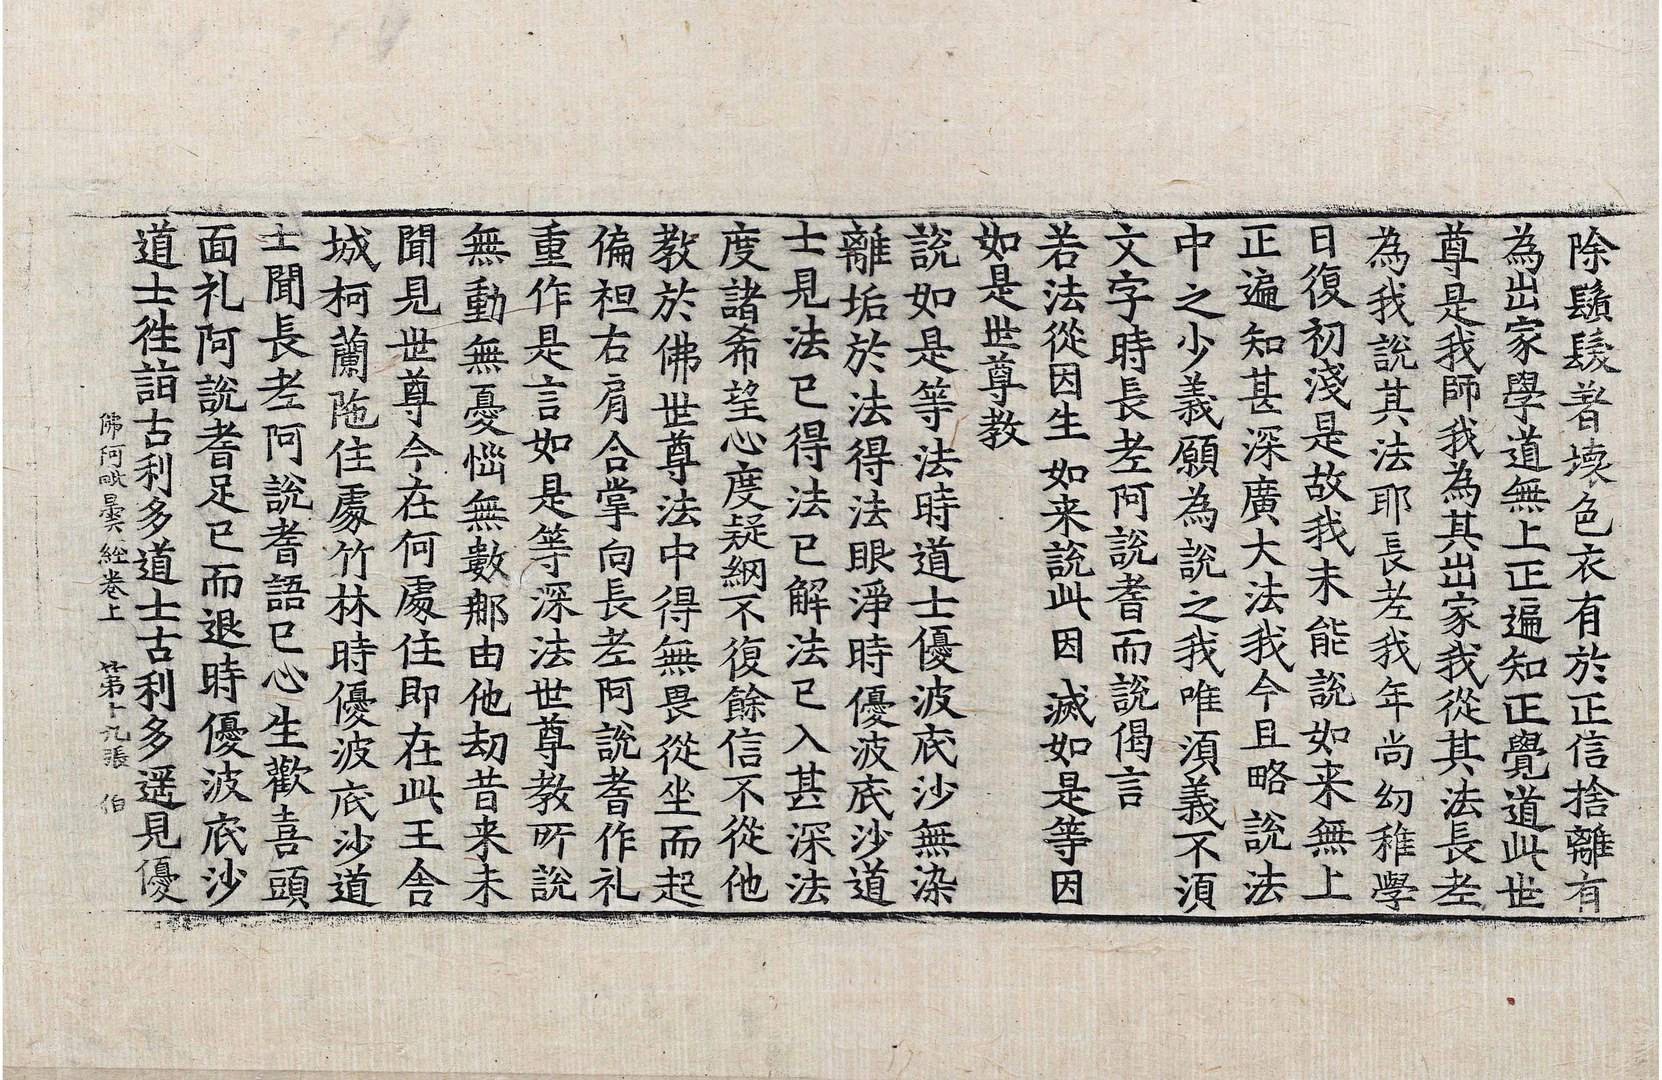 除鬚髮著壞色衣有於正信捨離有
為出家學道無上正遍知正覺道此世
尊是我師我為其出家我從其法長老
為我說其法耶長老我年尚幼稚學
日復初淺是故我未能說如来無上
正遍知甚深廣大法我今且略說法
中之少義願為說之我唯須義不須
文字時長老阿說耆而說偈言
若法從因生 如来說此因 滅如是等因
如是世尊教
說如是等法時道士優波底沙無染
離垢於法得法眼淨時優波底沙道
士見法已得法已解法已入甚深法
度諸希望心度疑網不復餘信不從他
教於佛世尊法中得無畏從坐而起
偏袒右肩合掌向長老阿說耆作礼
重作是言如是等深法世尊教所說
無動無憂惱無數那由他劫昔来未
聞見世尊今在何處住即在此王舍
城柯蘭陁住處竹林時優波底沙道
士聞長老阿說耆語已心生歡喜頭
面礼阿說耆足已而退時優波底沙
道士徃詣古利多道士古利多遥見優
佛阿毗曇經卷上 第十九張 伯